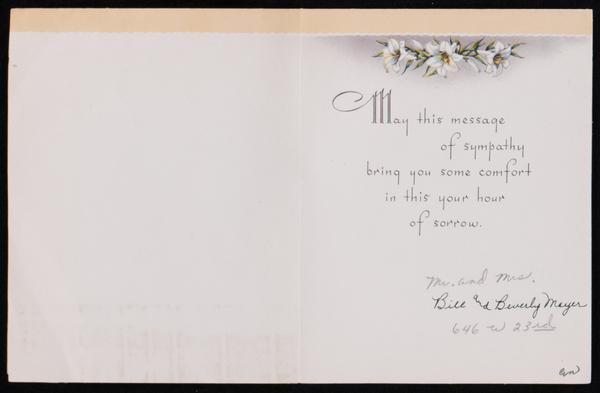 May this message
of sympathy
bring you some comfort
in this your hour
of sorrow.
Mr. and Mrs.
Bill and Beverly Mayer
646 W 23rd